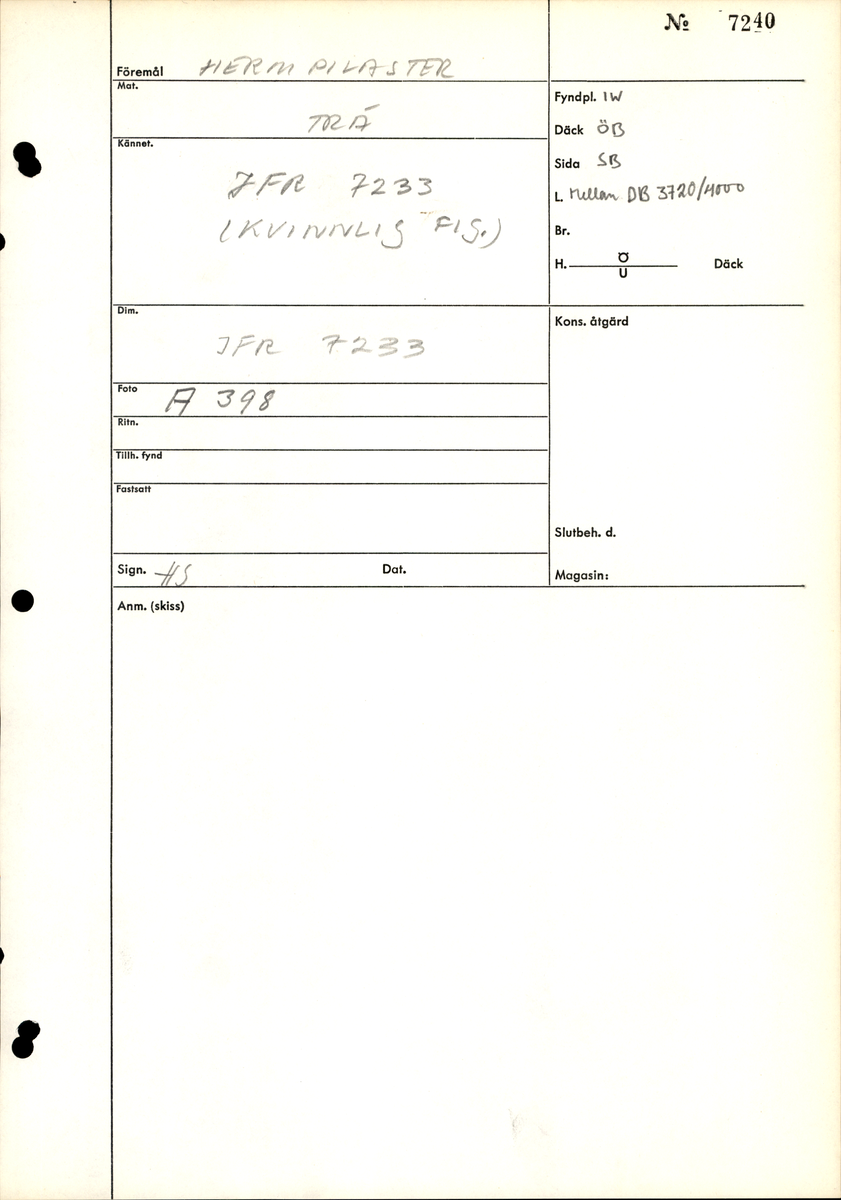 № 7240
Föremål HERM PILASTER
Mat.
TRÄ
Kännet.
JFR 7233
(KVINNLIG FIG.)
Fyndpl. IW
Däck ÖB
Sida SB
L. Mellan DB 3720/4000
Br.
H. Ö Däck
U
Dim.
JFR 7233
Foto A 398
Ritn.
Tillh. fynd
Fastsatt
Sign. HS Dat.
Kons. åtgärd
Slutbeh. d.
Magasin:
Anm. (skiss)